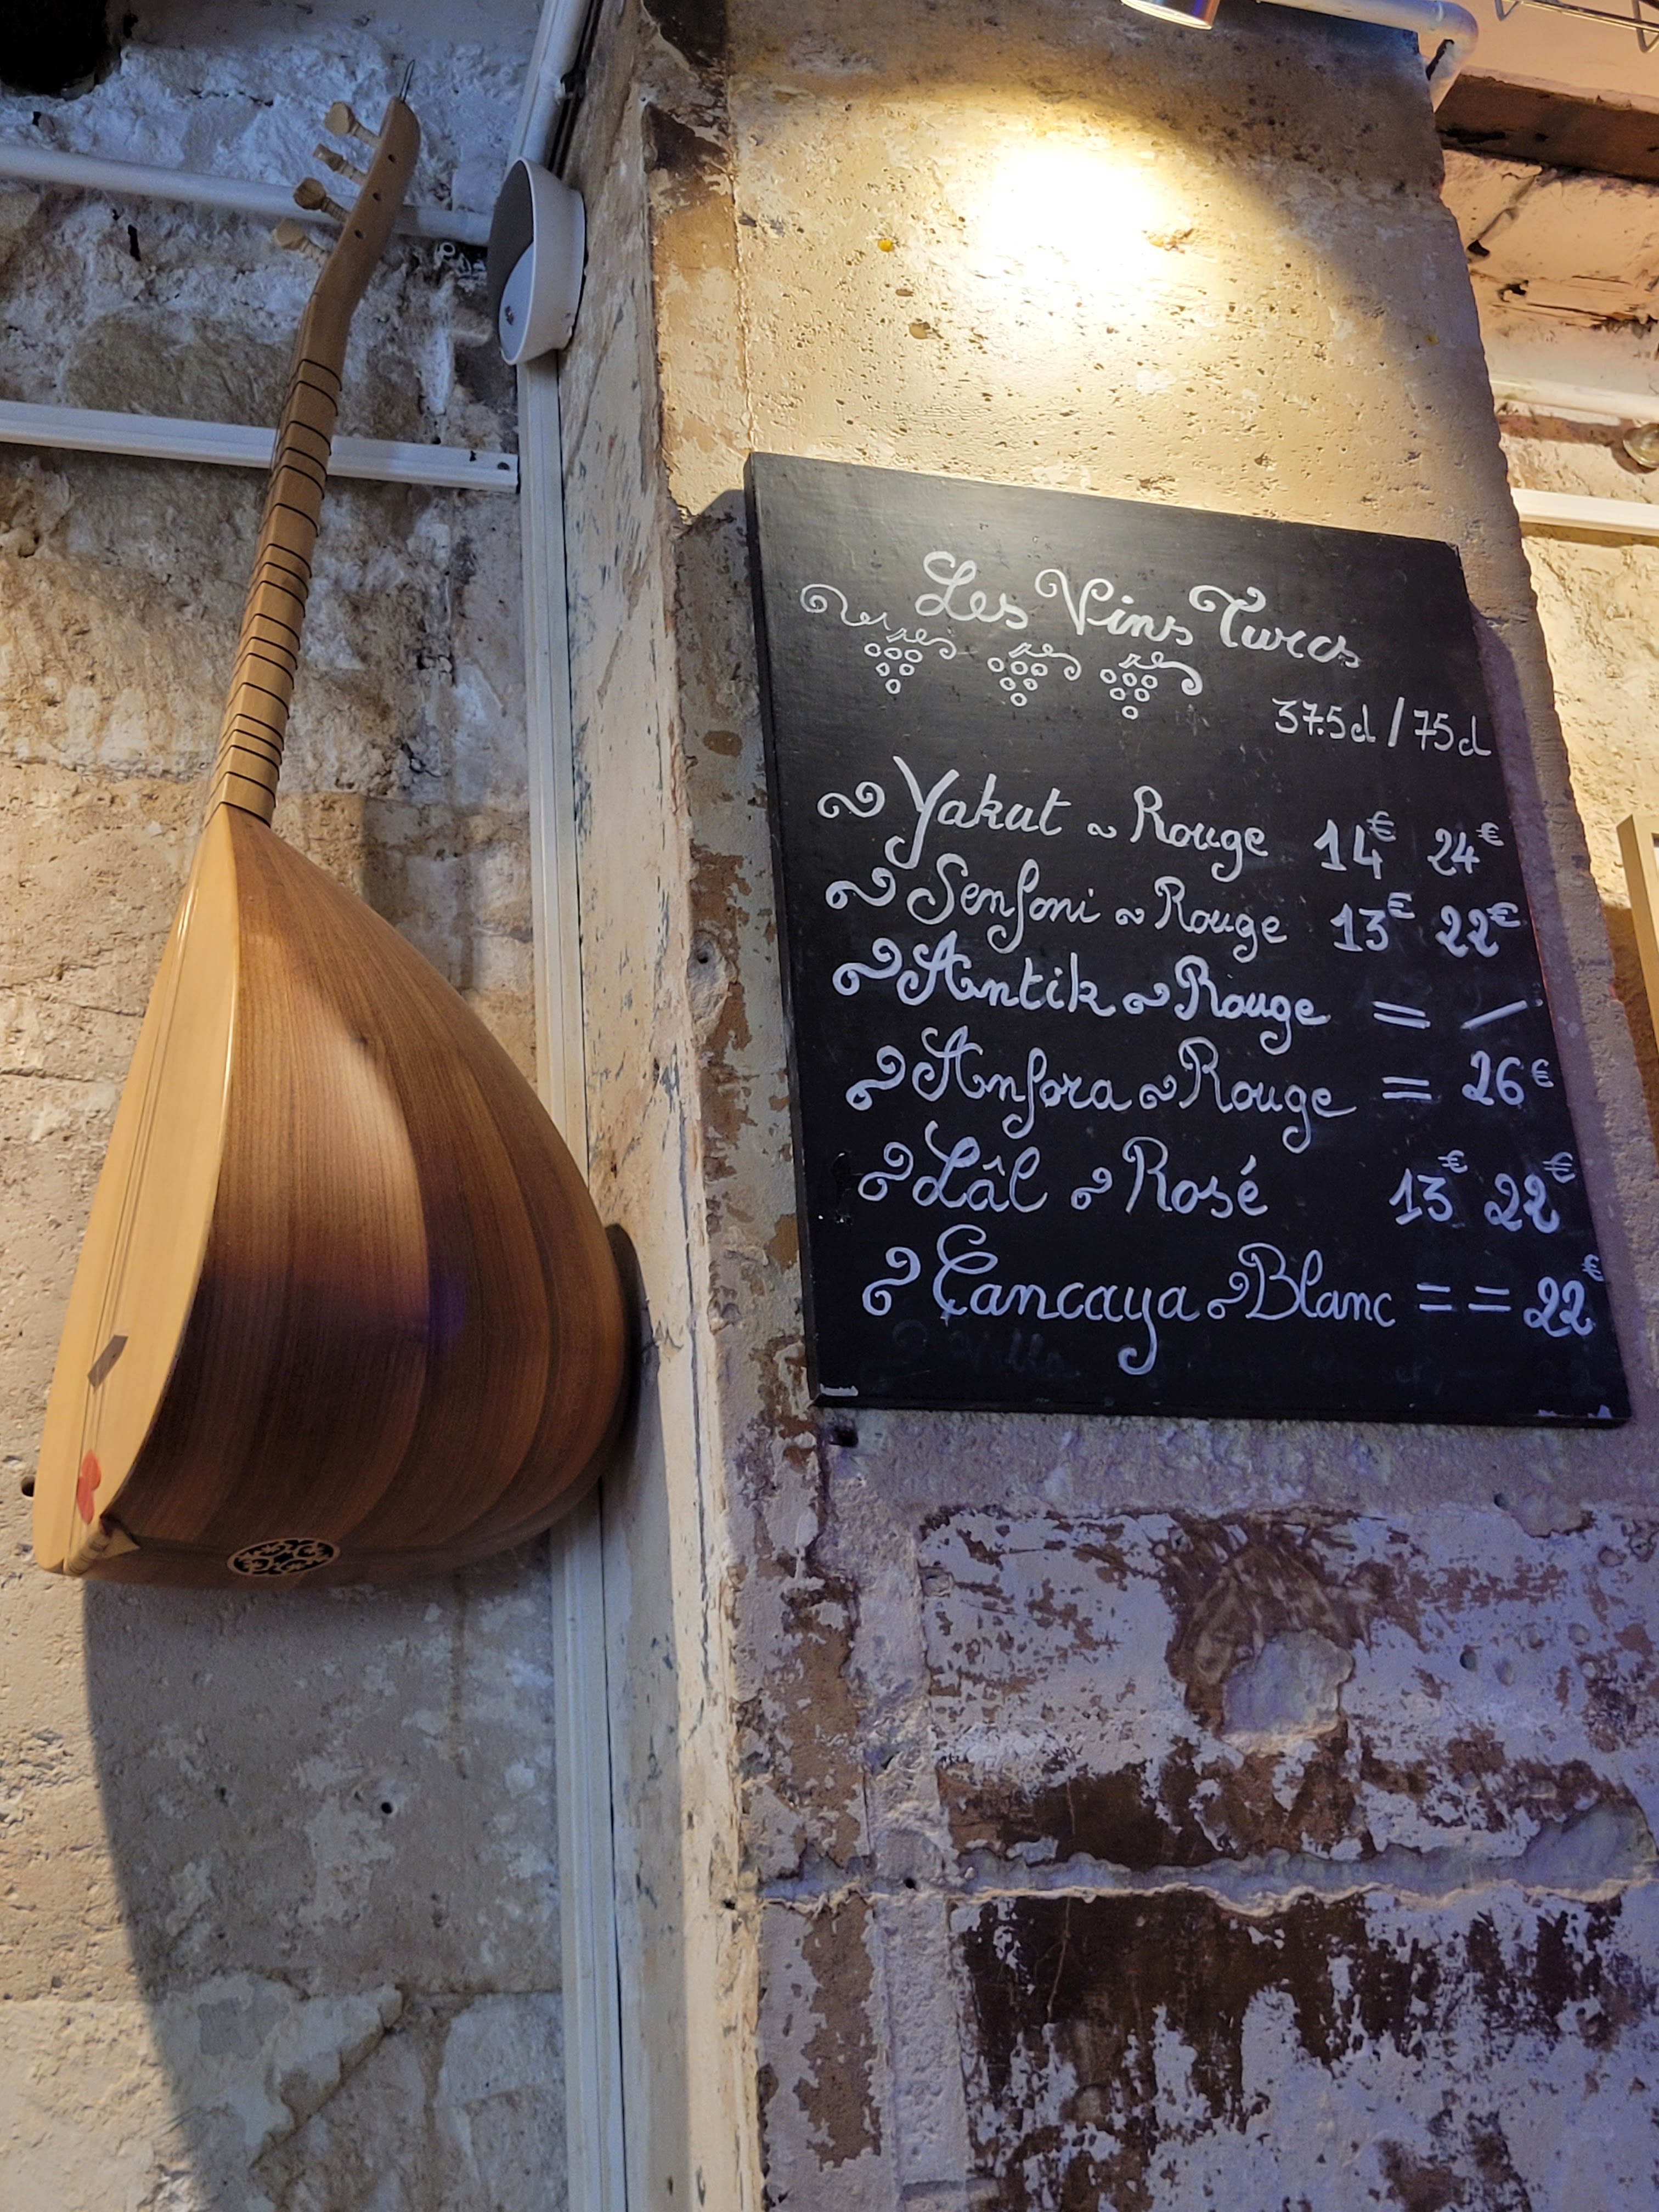 Les Vins Turcs
37.5cl / 75cl
Yakut ~ Rouge 14€ 24€
Senfoni ~ Rouge 13€ 22€
Antik ~ Rouge = /
Anfora ~ Rouge = 26€
Lâl ~ Rosé 13€ 22€
Çancaya ~ Blanc = = 22€